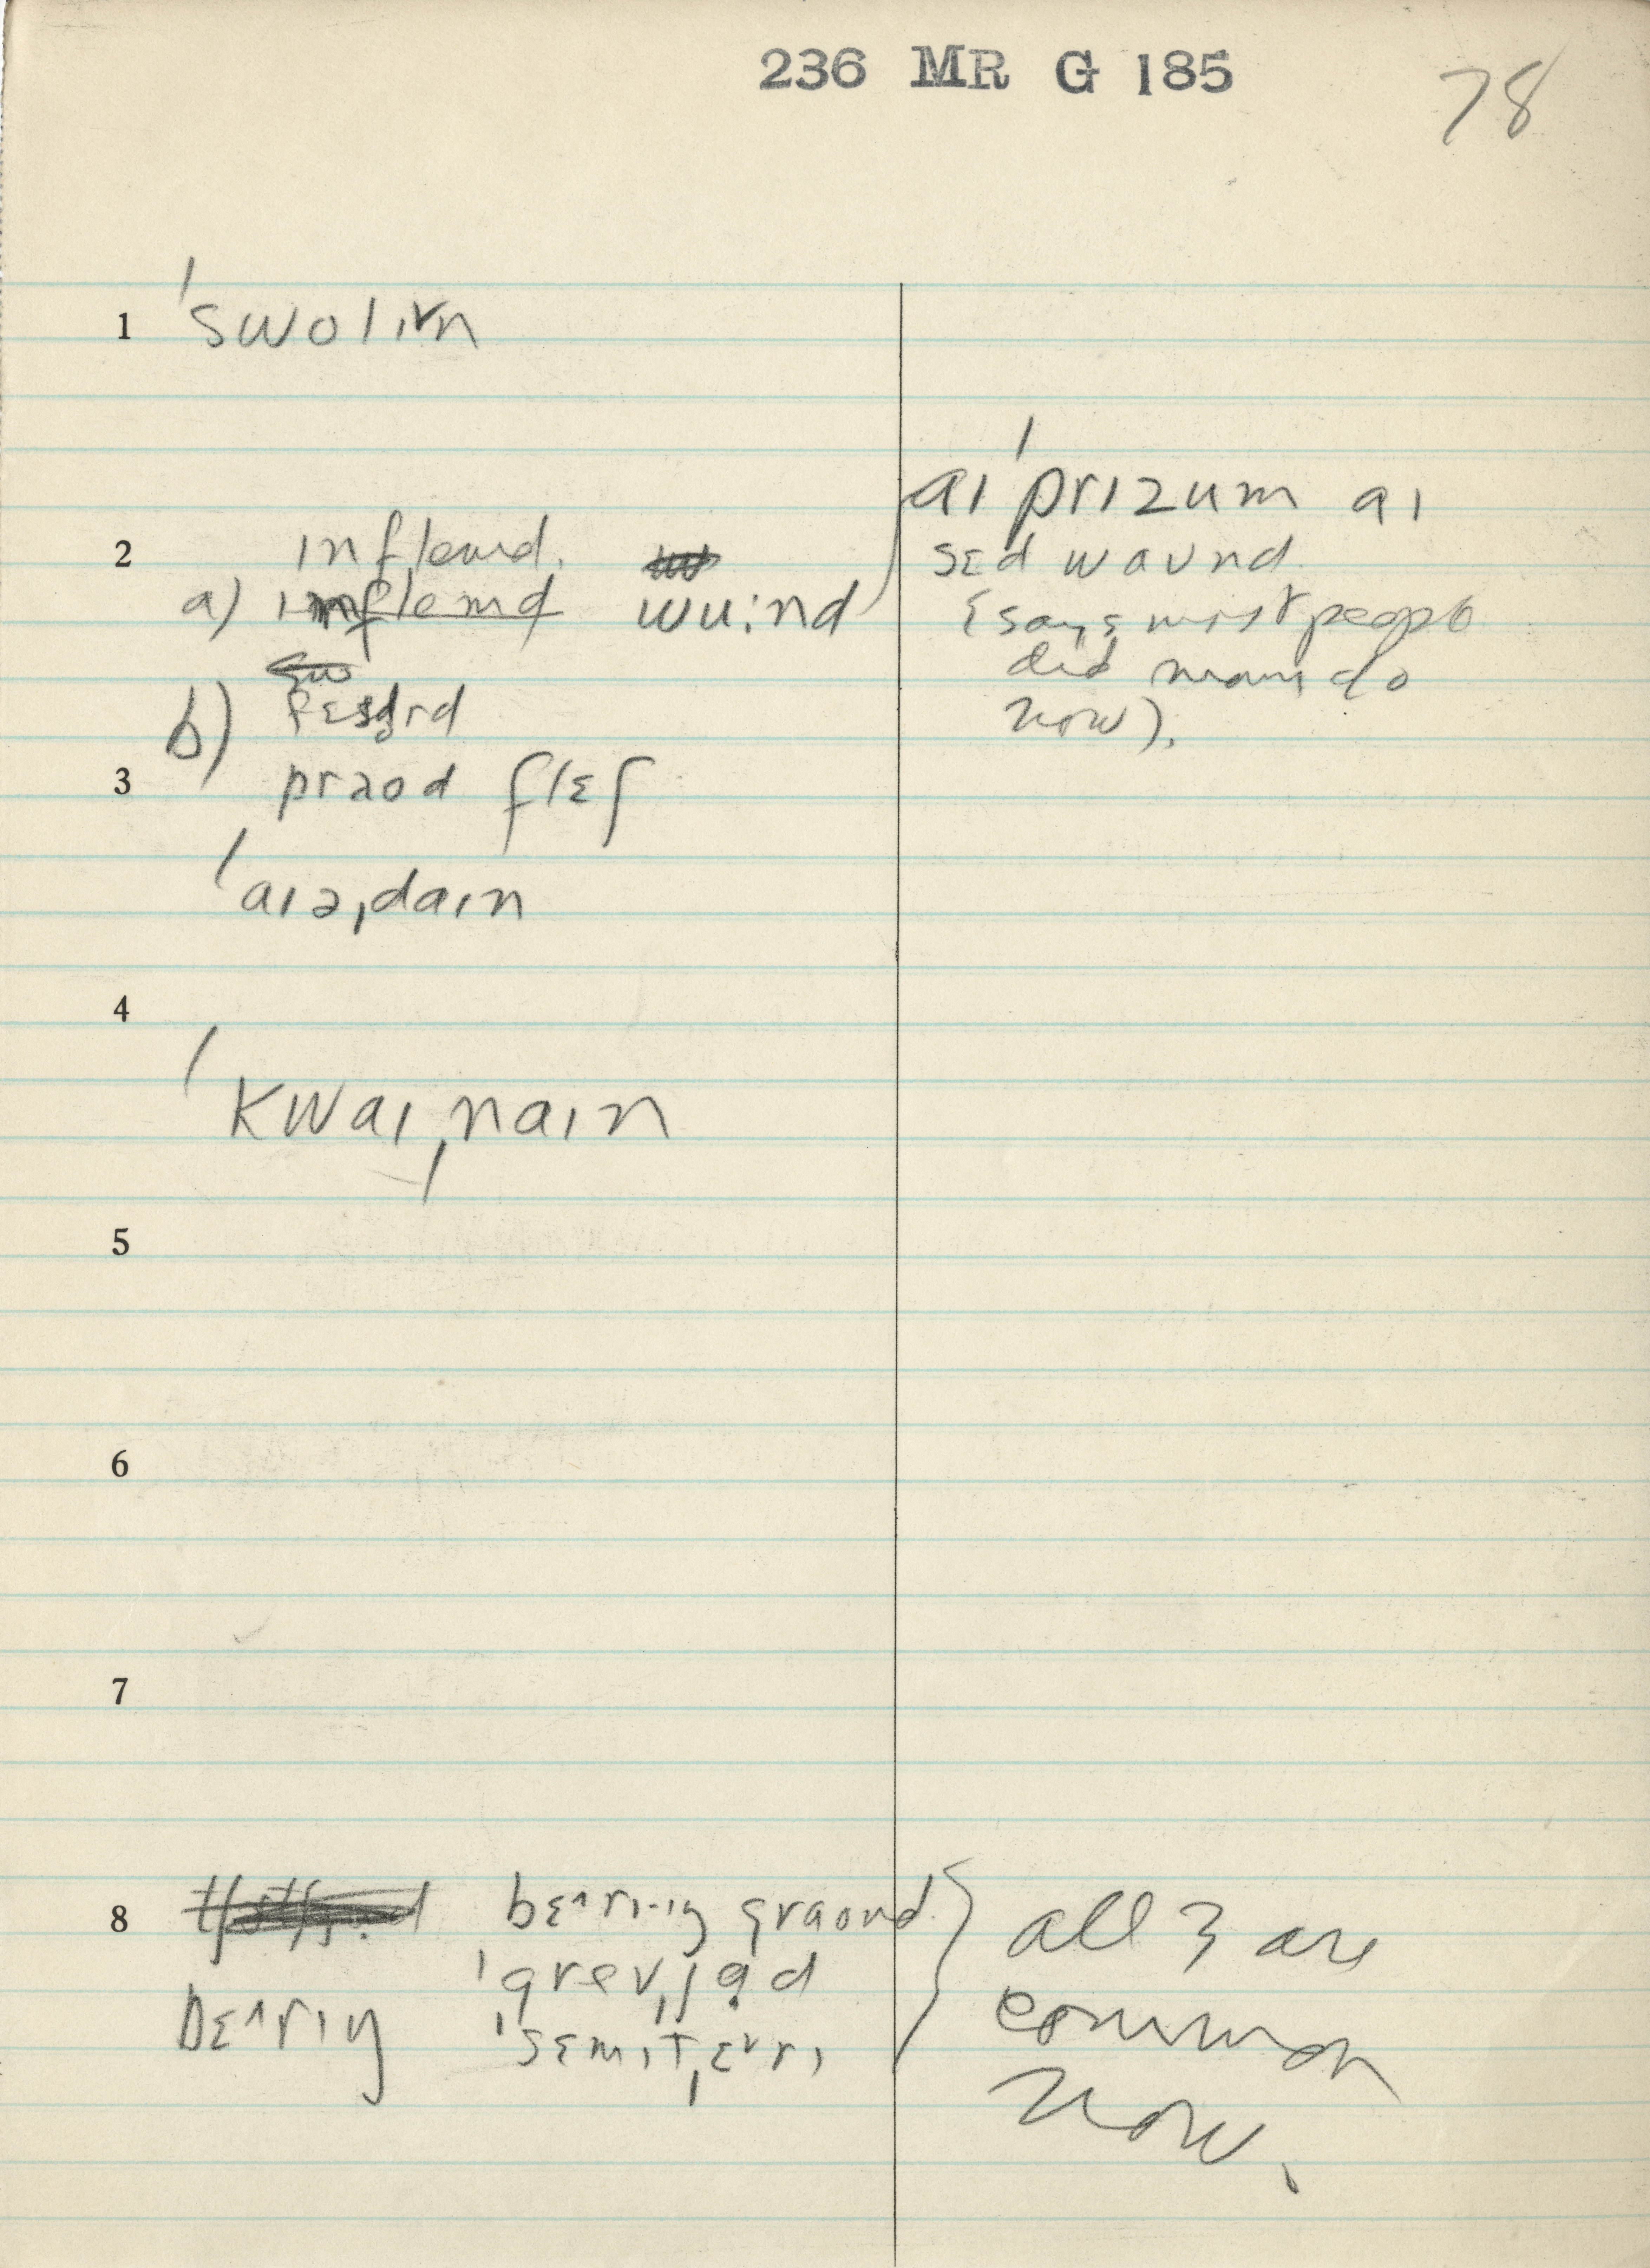 236 MR G 185
78
1 ˈswolɪvn
2 ɪnflemd.
a) ɪnflemd wu:nd
b) fɛsərd
3 praod flɛʃ
ˈaɪəˌdaɪn
4
ˈkwaɪˌnaɪn
5
6
7
8 bɛʌrɪŋ graond
bɛʌrɪŋ ˈgrevˌjəd
ˈsɛmɪˌtɛvrɪ
aɪ ˈprɪzum aɪ
sɛd waund
(says most people
did many do
now).
all 3 are
common
now.